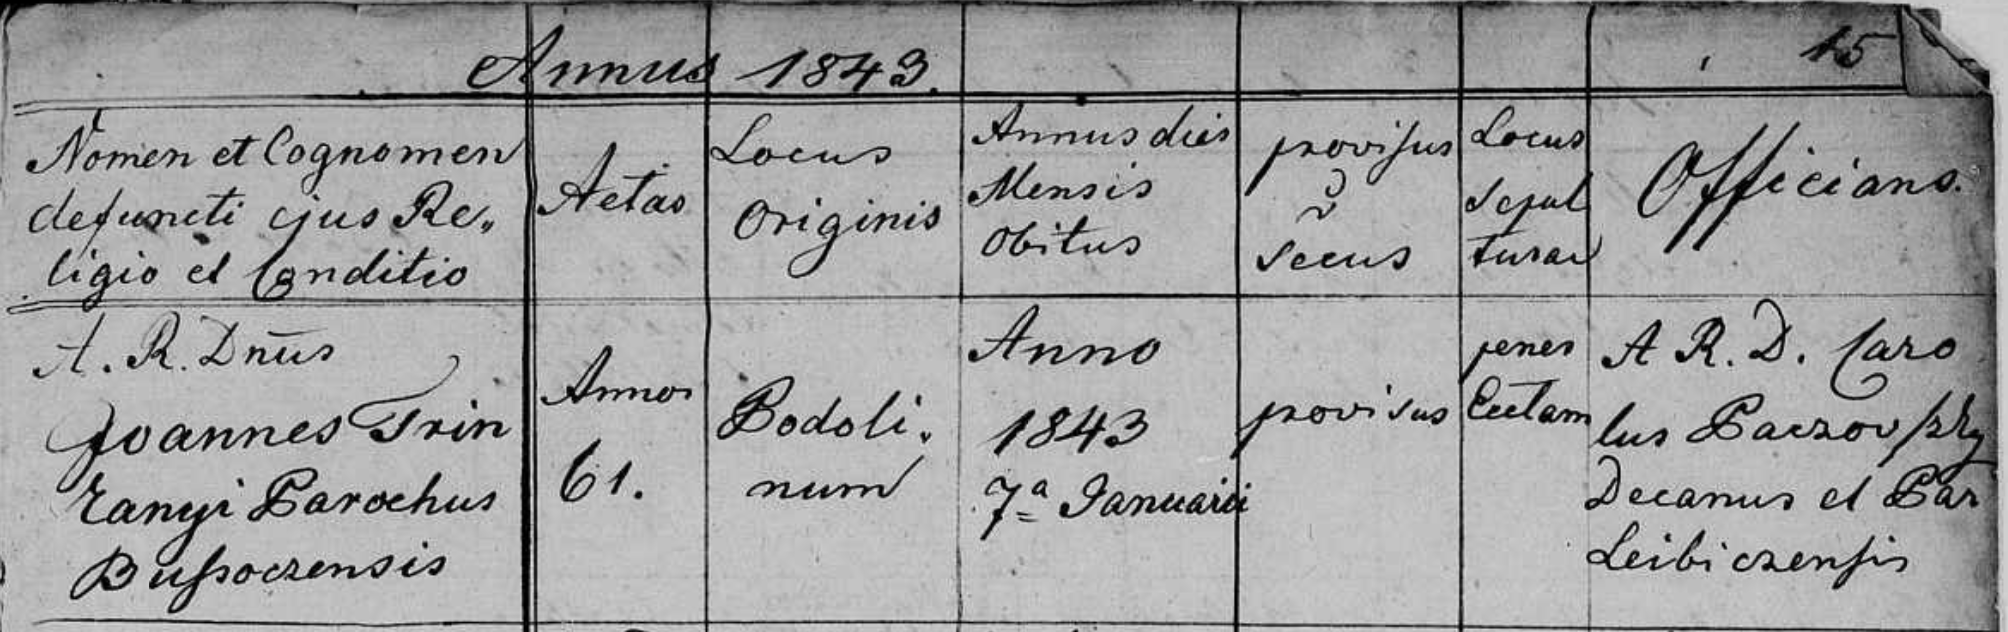 Annus 1843.
15
Nomen et Cognomen
defuncti ejus Re„
ligio et Conditio
Aetas
Locus
Originis
Annus dies
Mensis
Obitus
provisus
v
secus
Locus
Sepul
turae
Officians.
A. R. Dnus
Joannes Trin
Parochus
Bussoczensis
Annos
61.
Podoli.
num
Anno
1843
7a Januarii
provisus
penes
Ecclam
A R. D. Caro
lus Paczovszky
Decanus et Par
Leibiczensis